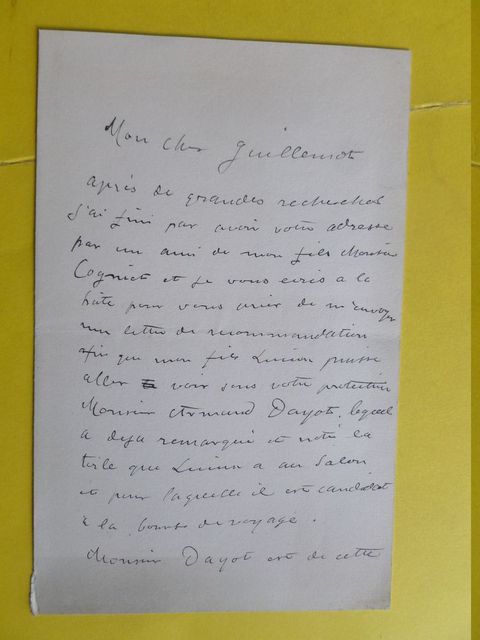 Mon cher Guillemet
après de grandes recherches
j'ai fini par avoir votre adresse
par un ami de mon fils Monsieur
Cogniet et je vous écris à la
hâte pour vous prier de m'envoyer
une lettre de recommandation
afin que mon fils Lucien puisse
aller voir sous votre protection
Monsieur Armand Dayot, lequel
a déja remarqué et noté la
toile que Lucien a au Salon
et pour laquelle il est candidat
à la bourse de voyage.
Monsieur Dayot est de cette